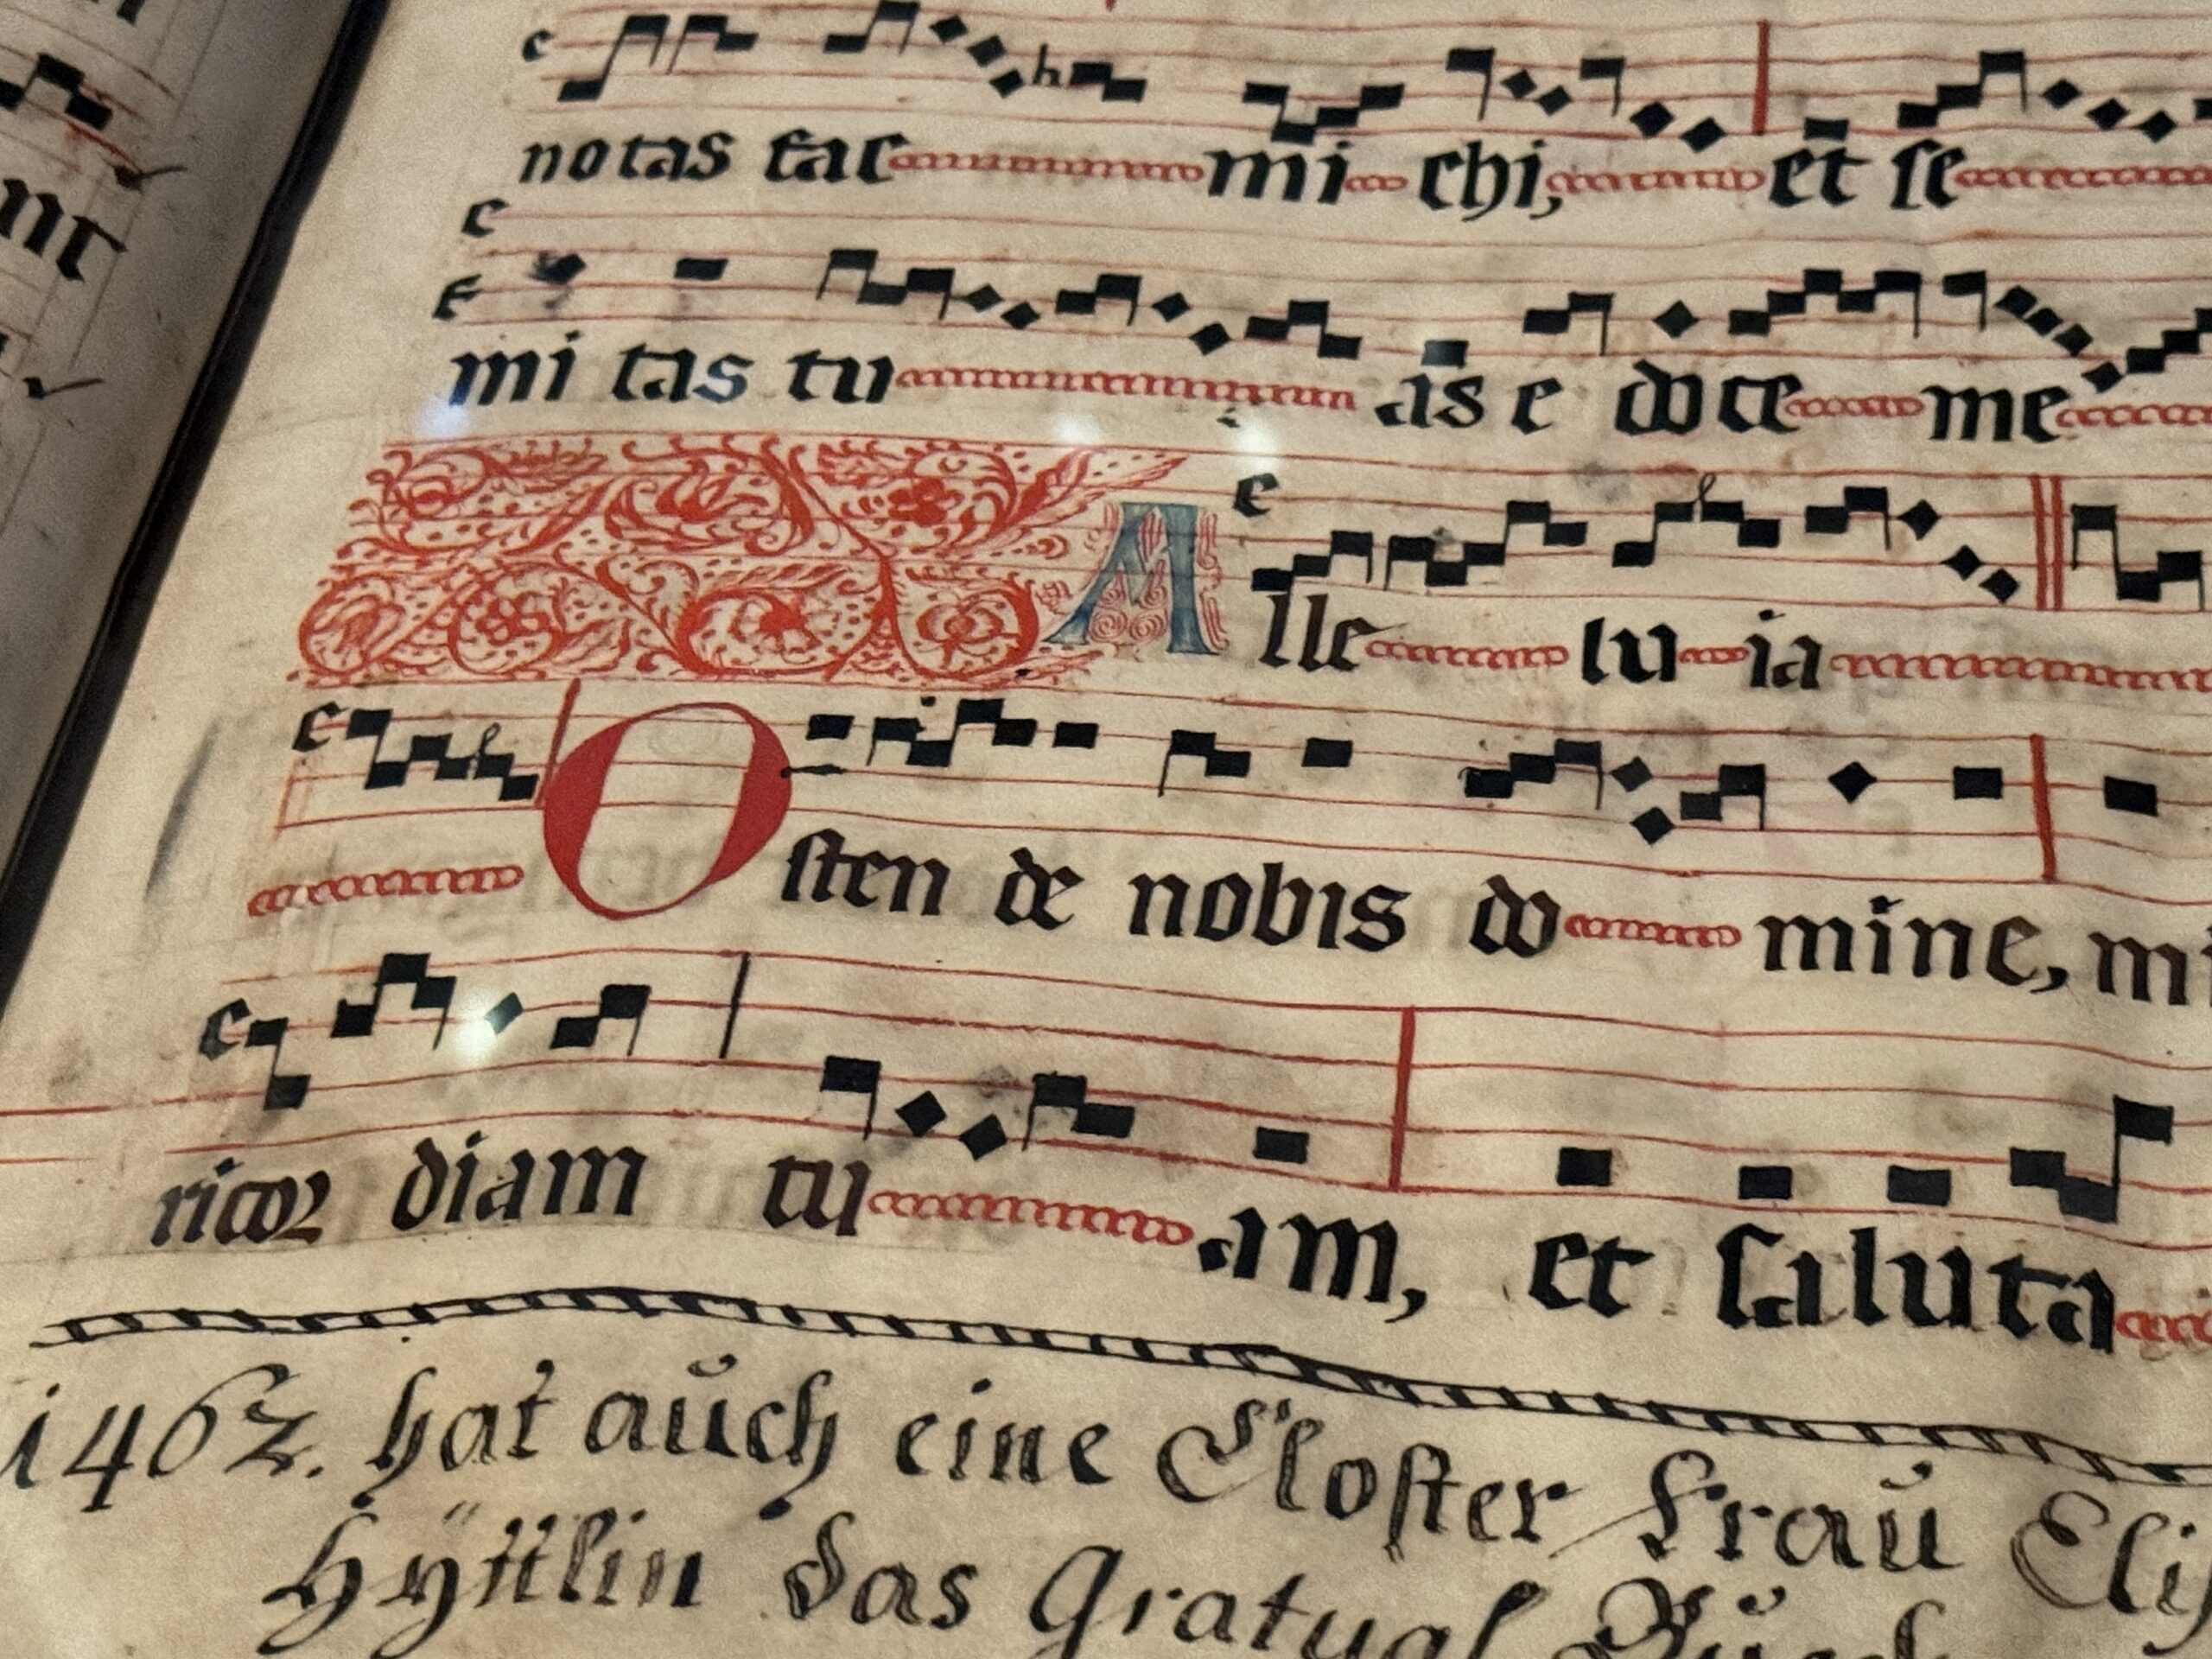 notas fac mi chi, et se
mi tas tu as e doce me
Alle lu ia
Osten de nobis do mine, mi
ricor diam tu am, et saluta
1462. hat auch eine Closter Frau Elis
Hÿttlin das Gratual Buech